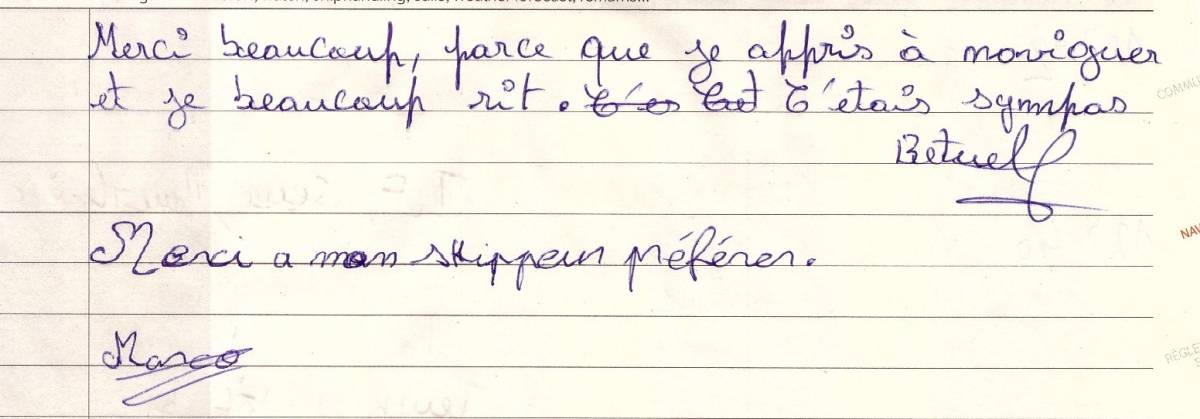 Merci beaucoup, parce que je appris à naviguer
et je beaucoup rit. T'étais sympas
Betuel
Merci a mon skippeur préférer.
Marco
COMMU
NAV
RÈGLE